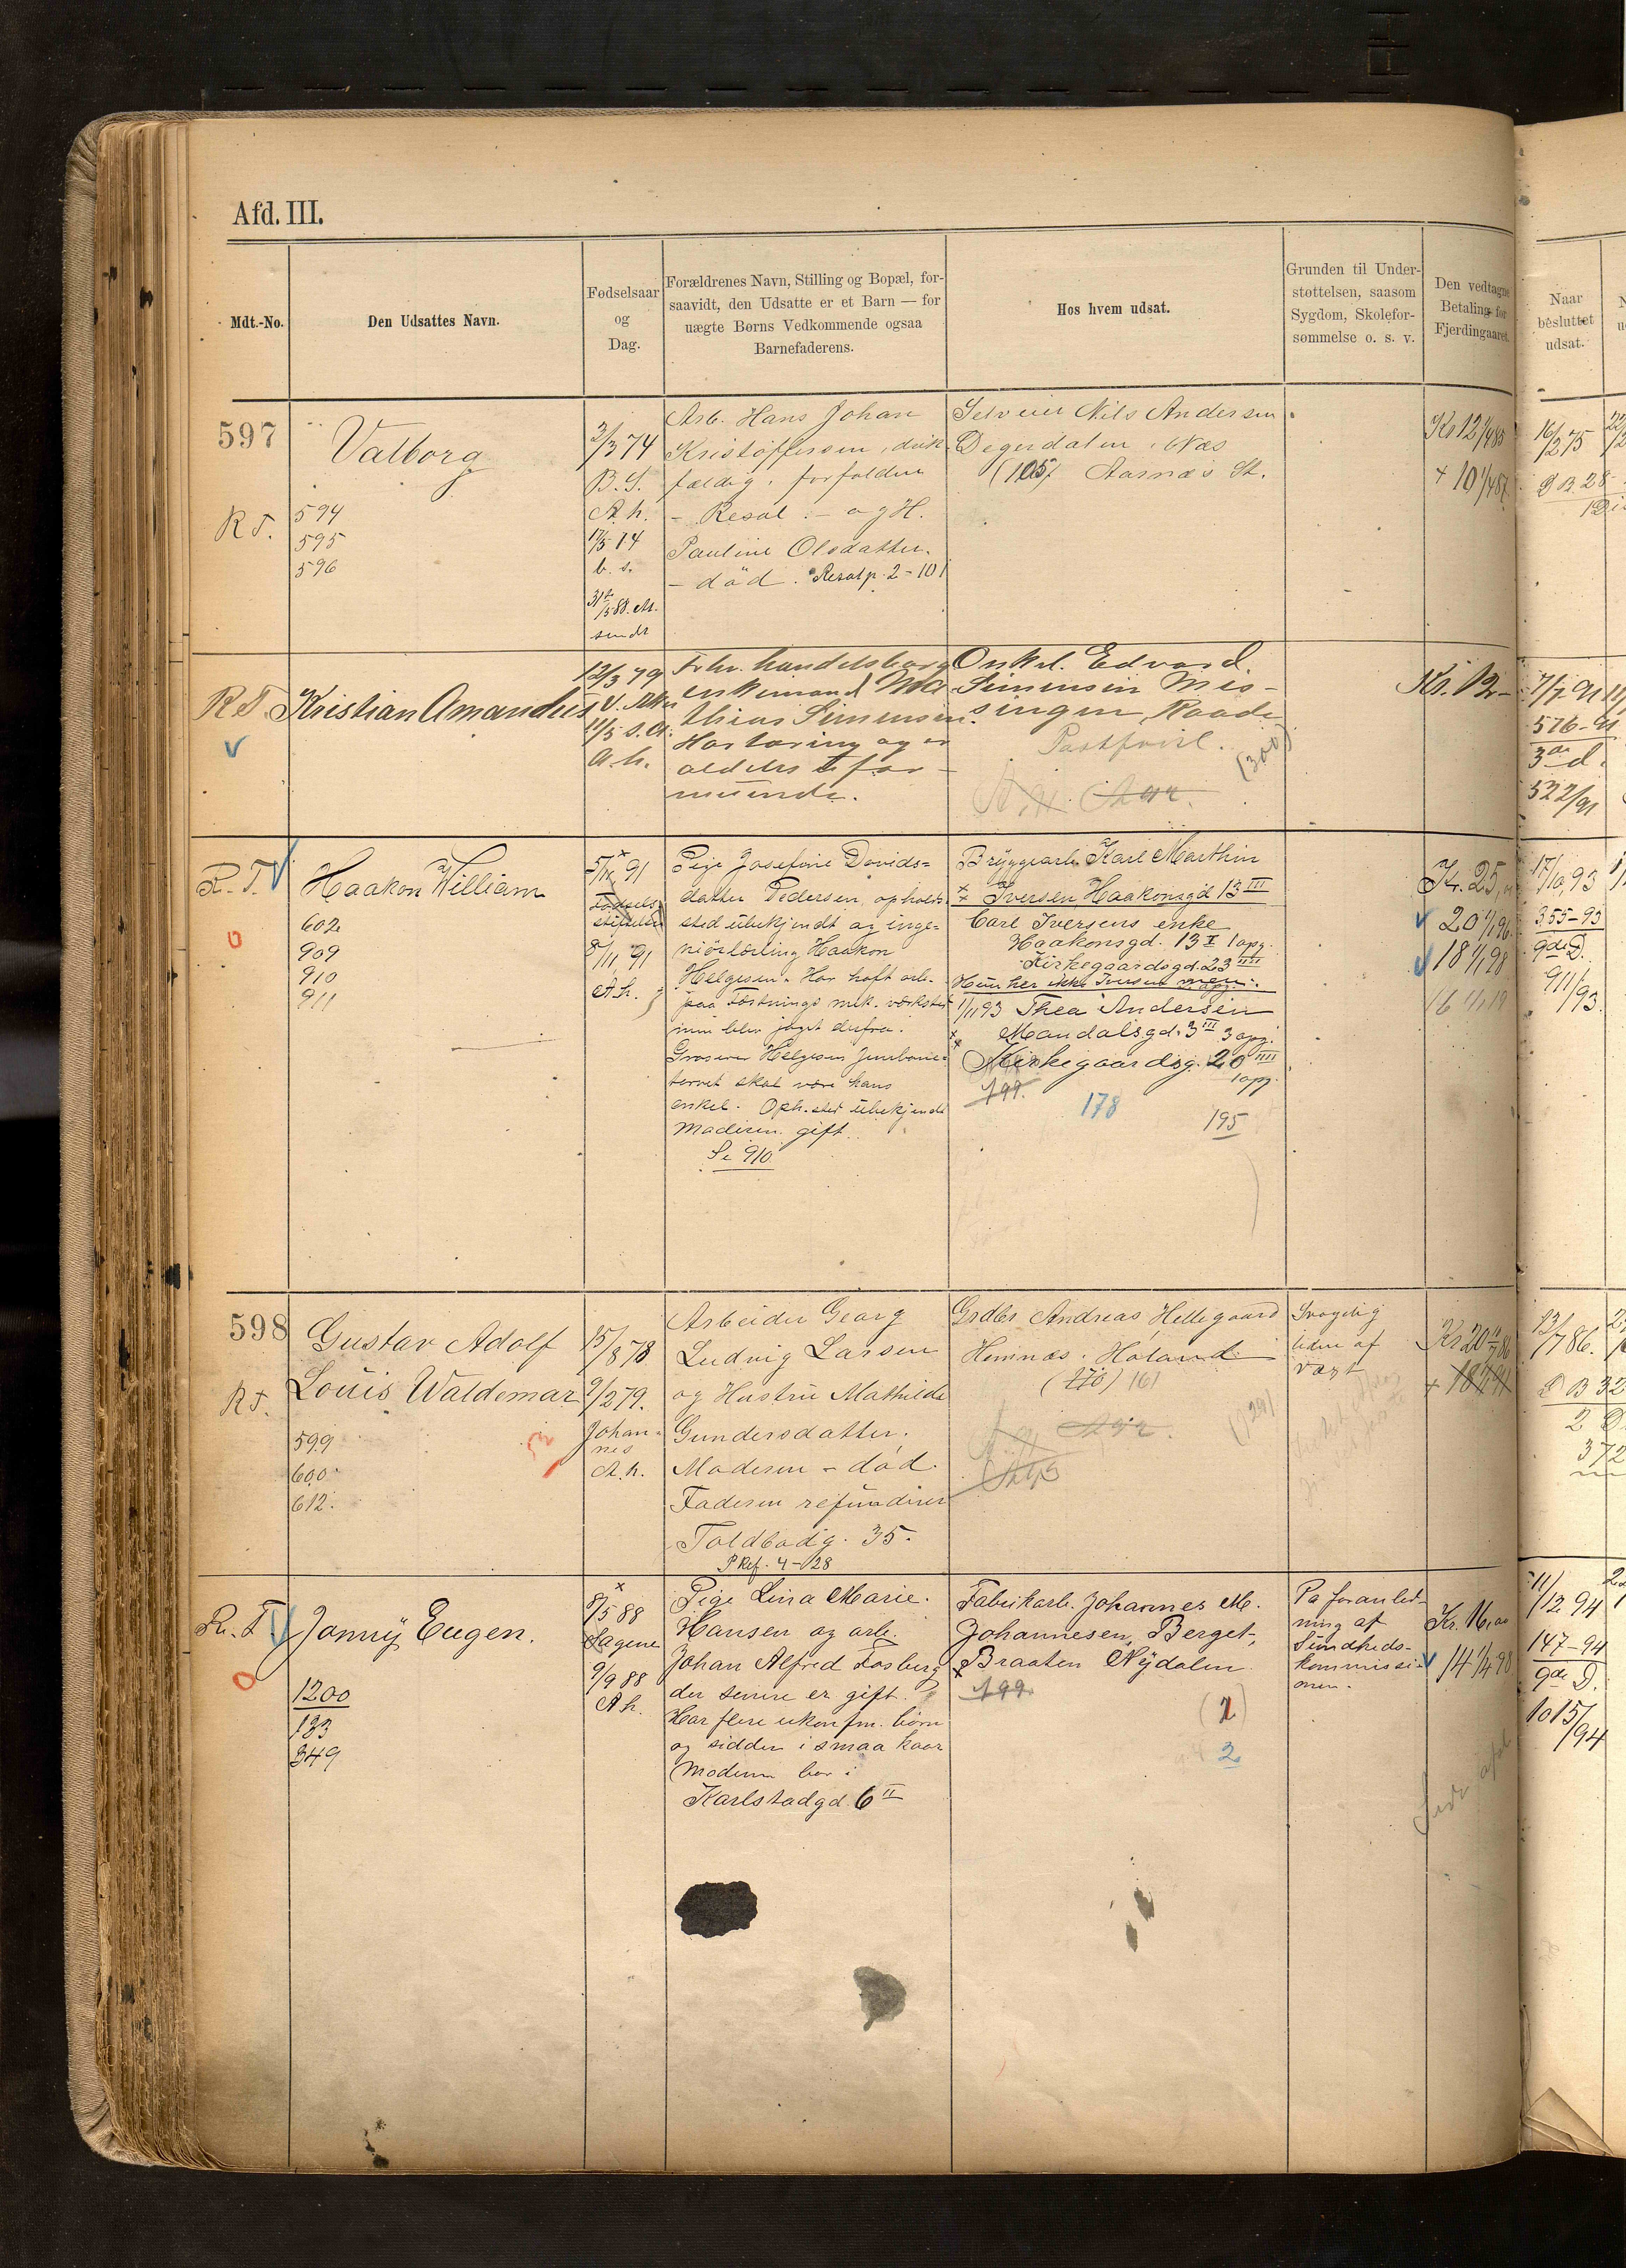 Afd. III.
Mdt.-No.
Den Udsattes Navn.
Fødselsaar
og
Dag.
Forældrenes Navn, Stilling og Bopæl, for-
saavidt, den Udsatte er et Barn — for
uægte Børns Vedkommende ogsaa
Barnefaderens.
Hos hvem udsat.
Grunden til Under-
støttelsen, saasom
Sygdom, Skolefor-
sømmelse o. s. v.
Den vedtagne
Betaling for
Fjerdingaaret.
Naar
besluttet
udsat.
597
Valborg
R T.
594
595
596
2/3 74
B. S.
A. h.
17/5 14
b. s.
31te/5 88. M.
sendt
Arb. Hans Johan
Kristoffersen, drik
fældig, forfalden
- Resol. - og H.
Pauline Olsdatter.
- død. Resolp. 2-101
Selveier Nils Andersen
Degerdalen, Næs
(105) Aarnæs St.
Kr 12 1/4 83
+ 10 1/4 87
16/2 75
D B. 28
R T. Kristian Amandus
12/3 79
11/5 s. A.
A. h.
Fhv. handelsborg
enkemand Ma
thias Simensen.
Har tæring og er
aldeles ufor-
muende.
Onkel. Edvard
Simensen Mis-
singen, Raade
Postfrist.
(300)
Kr. 12-
7/7 91
576-91
3de d.
522/91
R. T.
Haakon William
602
909
910
911
5/10 91
Fødsels
stiftelsen
8/11 91
A. h.
Pige Josefine Davids-
datter Pedersen, opholds-
sted ubekjendt og inge-
niörlærling Haakon
Helgesen. Har havt arb.
paa Fæstnings mek. værksted
men blev jaget derfra.
Grosserer Helgesen Jernbane-
torvet skal være hans
onkel. Oph. sted ubekjendt
Moderen gift.
Se 910
Bryggearb. Karl Marthin
Iversen, Haakonsgd 13 III
Carl Iversens enke
Haakonsgd. 13 I 1 opg.
Kirkegaardsgd. 23 IIII
1/11 93 Thea Andersen
Mandalsgd. 3 III 3 opg.
Kirkegaardsg. 20 IIII
1 opg.
199.
178
195
Kr. 25,00
20 1/1 96
18 1/1 98
16 1/1 19
17/10, 93
355-93
9de D.
911/93.
598
Gustav Adolf
Louis Waldemar
R T.
599
600
612.
15/8 78
9/2 79.
Johan-
nes
A. h.
Arbeider Georg
Ludvig Larsen
og Hustru Mathilde
Gundersdatter.
Moderen - død.
Faderen refunderer
Toldbodg. 35.
P Ref. 4-128
Grdbr Andreas Hellegaard
Hemnæs. Høland
(170) 161
(129)
Svagelig
liden af
vext
Kr 20
+ 18
13/7 86.
D B 32
2 D
372
R. T.
Jonny Eugen.
1200
133
349
8/5 88
Sagene
9/9 88
A h.
Pige Lina Marie
Hansen og arb.
Johan Alfred Fosberg
der senere er gift.
Har flere ukonfm. børn
og sidder i smaa kaar
Moderen bor i
Karlstadgd. 6 II
Fabrikarb. Johannes M.
Johannesen, Berget-,
Braaten Nydalen
199.
(2)
2
Pa foranled-
ning af
Sundheds-
kommissi-
onen.
Kr. 16,00
14 1/4 98
11/12 94
147-94
9de D.
1015/94